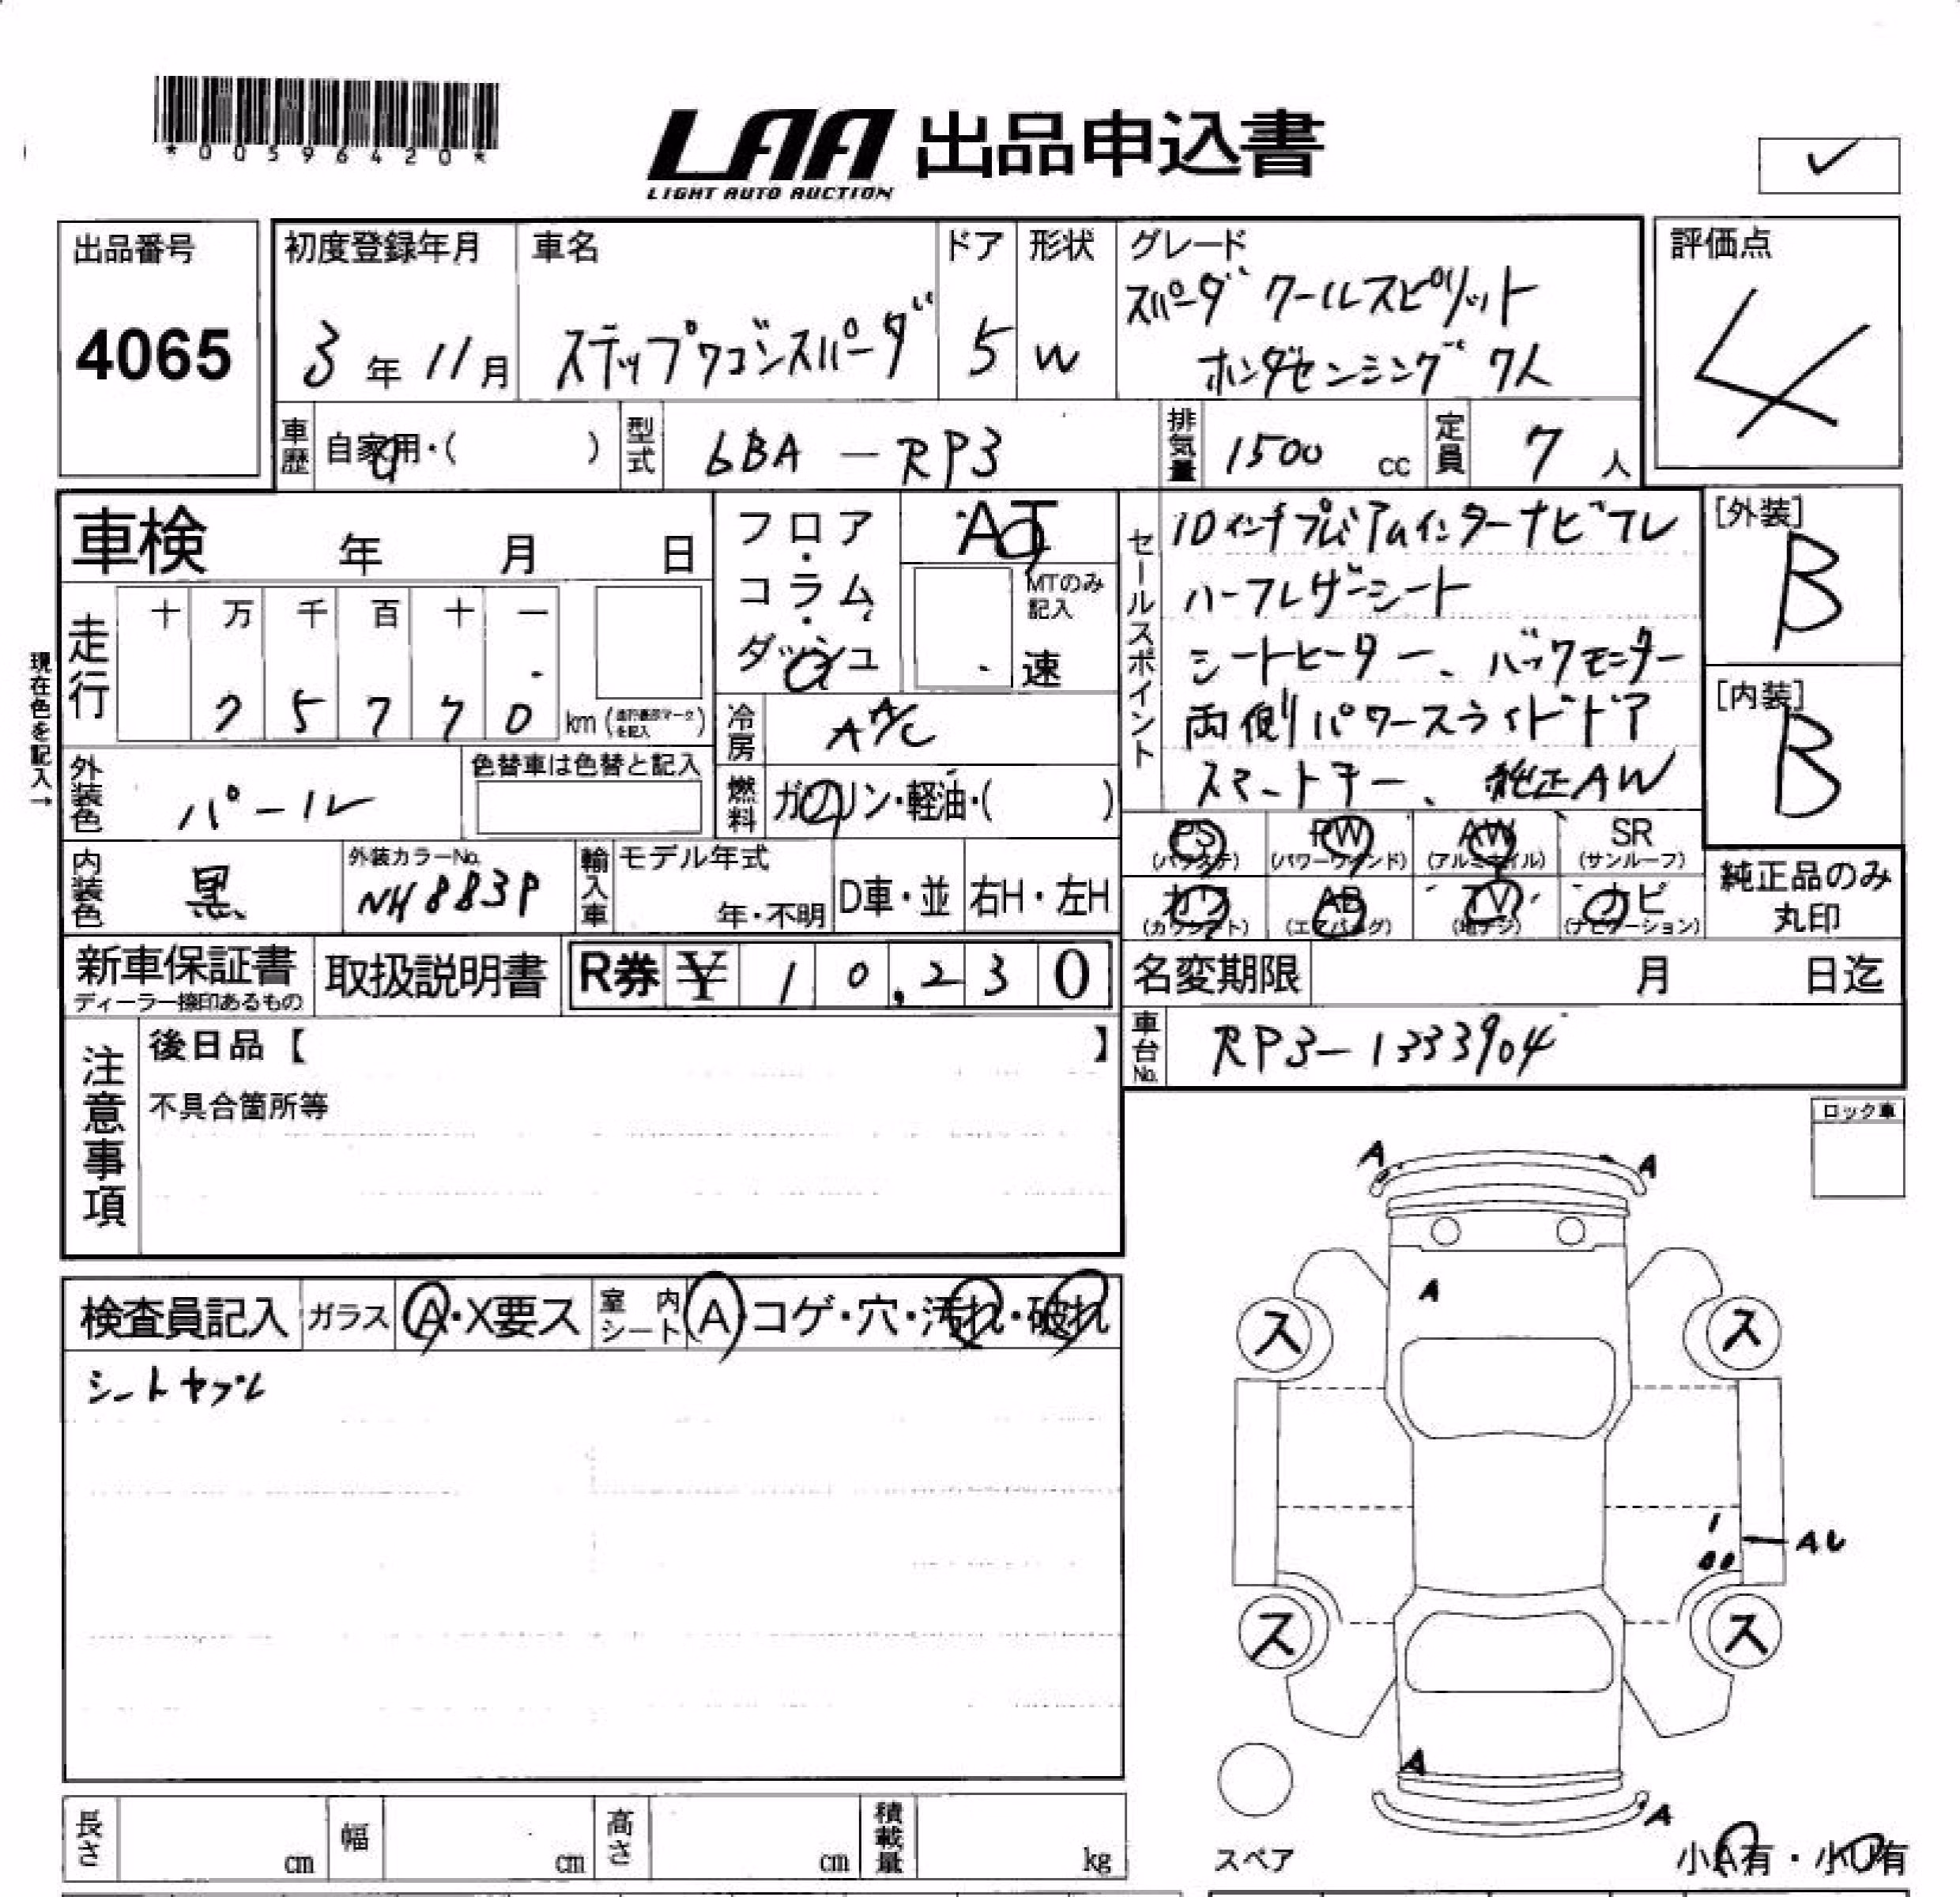 *00596420*
LAA 出品申込書
LIGHT AUTO AUCTION
✓
出品番号
4065
初度登録年月
3年11月
車名
ステップワゴンスパーダ
ドア
5
形状
W
グレード
スパーダ クールスピリット
ホンダセンシング 7人
評価点
4
車歴
自家用・( )
型式
6BA-RP3
排気量
1500 cc
定員
7人
車検 年 月 日
現在色を記入→
走行
十 万 千 百 十 一
km
フロア・コラム・ダッシュ
AT
MTのみ記入
速
冷房
AAC
燃料
ガソリン・軽油・( )
セールスポイント
10インチプレミアムインターナビ フル
ハーフレザーシート
シートヒーター、バックモニター
両側パワースライドドア
スマートキー、純正AW
[外装]
B
[内装]
B
外装色
パール
色替車は色替と記入
内装色
黒
外装カラーNo.
NH883P
輸入車
モデル年式
年・不明
D車・並
右H・左H
PS
(パワステ)
PW
(パワーウインド)
AW
(アルミホイル)
SR
(サンルーフ)
カワ
(カワシート)
AB
(エアバッグ)
TV
(地デジ)
ナビ
(ナビゲーション)
純正品のみ
丸印
新車保証書
ディーラー捺印あるもの
取扱説明書
R券 ¥ 10,230
名変期限 月 日迄
車台No.
RP3-1333904
注意事項
後日品【 】
不具合箇所等
ロック車
検査員記入
ガラス
A・X要ス
室内シート
A・コゲ・穴・汚れ・破れ
シートヤブレ
A
A
A
ス
ス
AU
ス
ス
A
A
スペア
小A有・小U有
長さ cm
幅 cm
高さ cm
積載量 kg